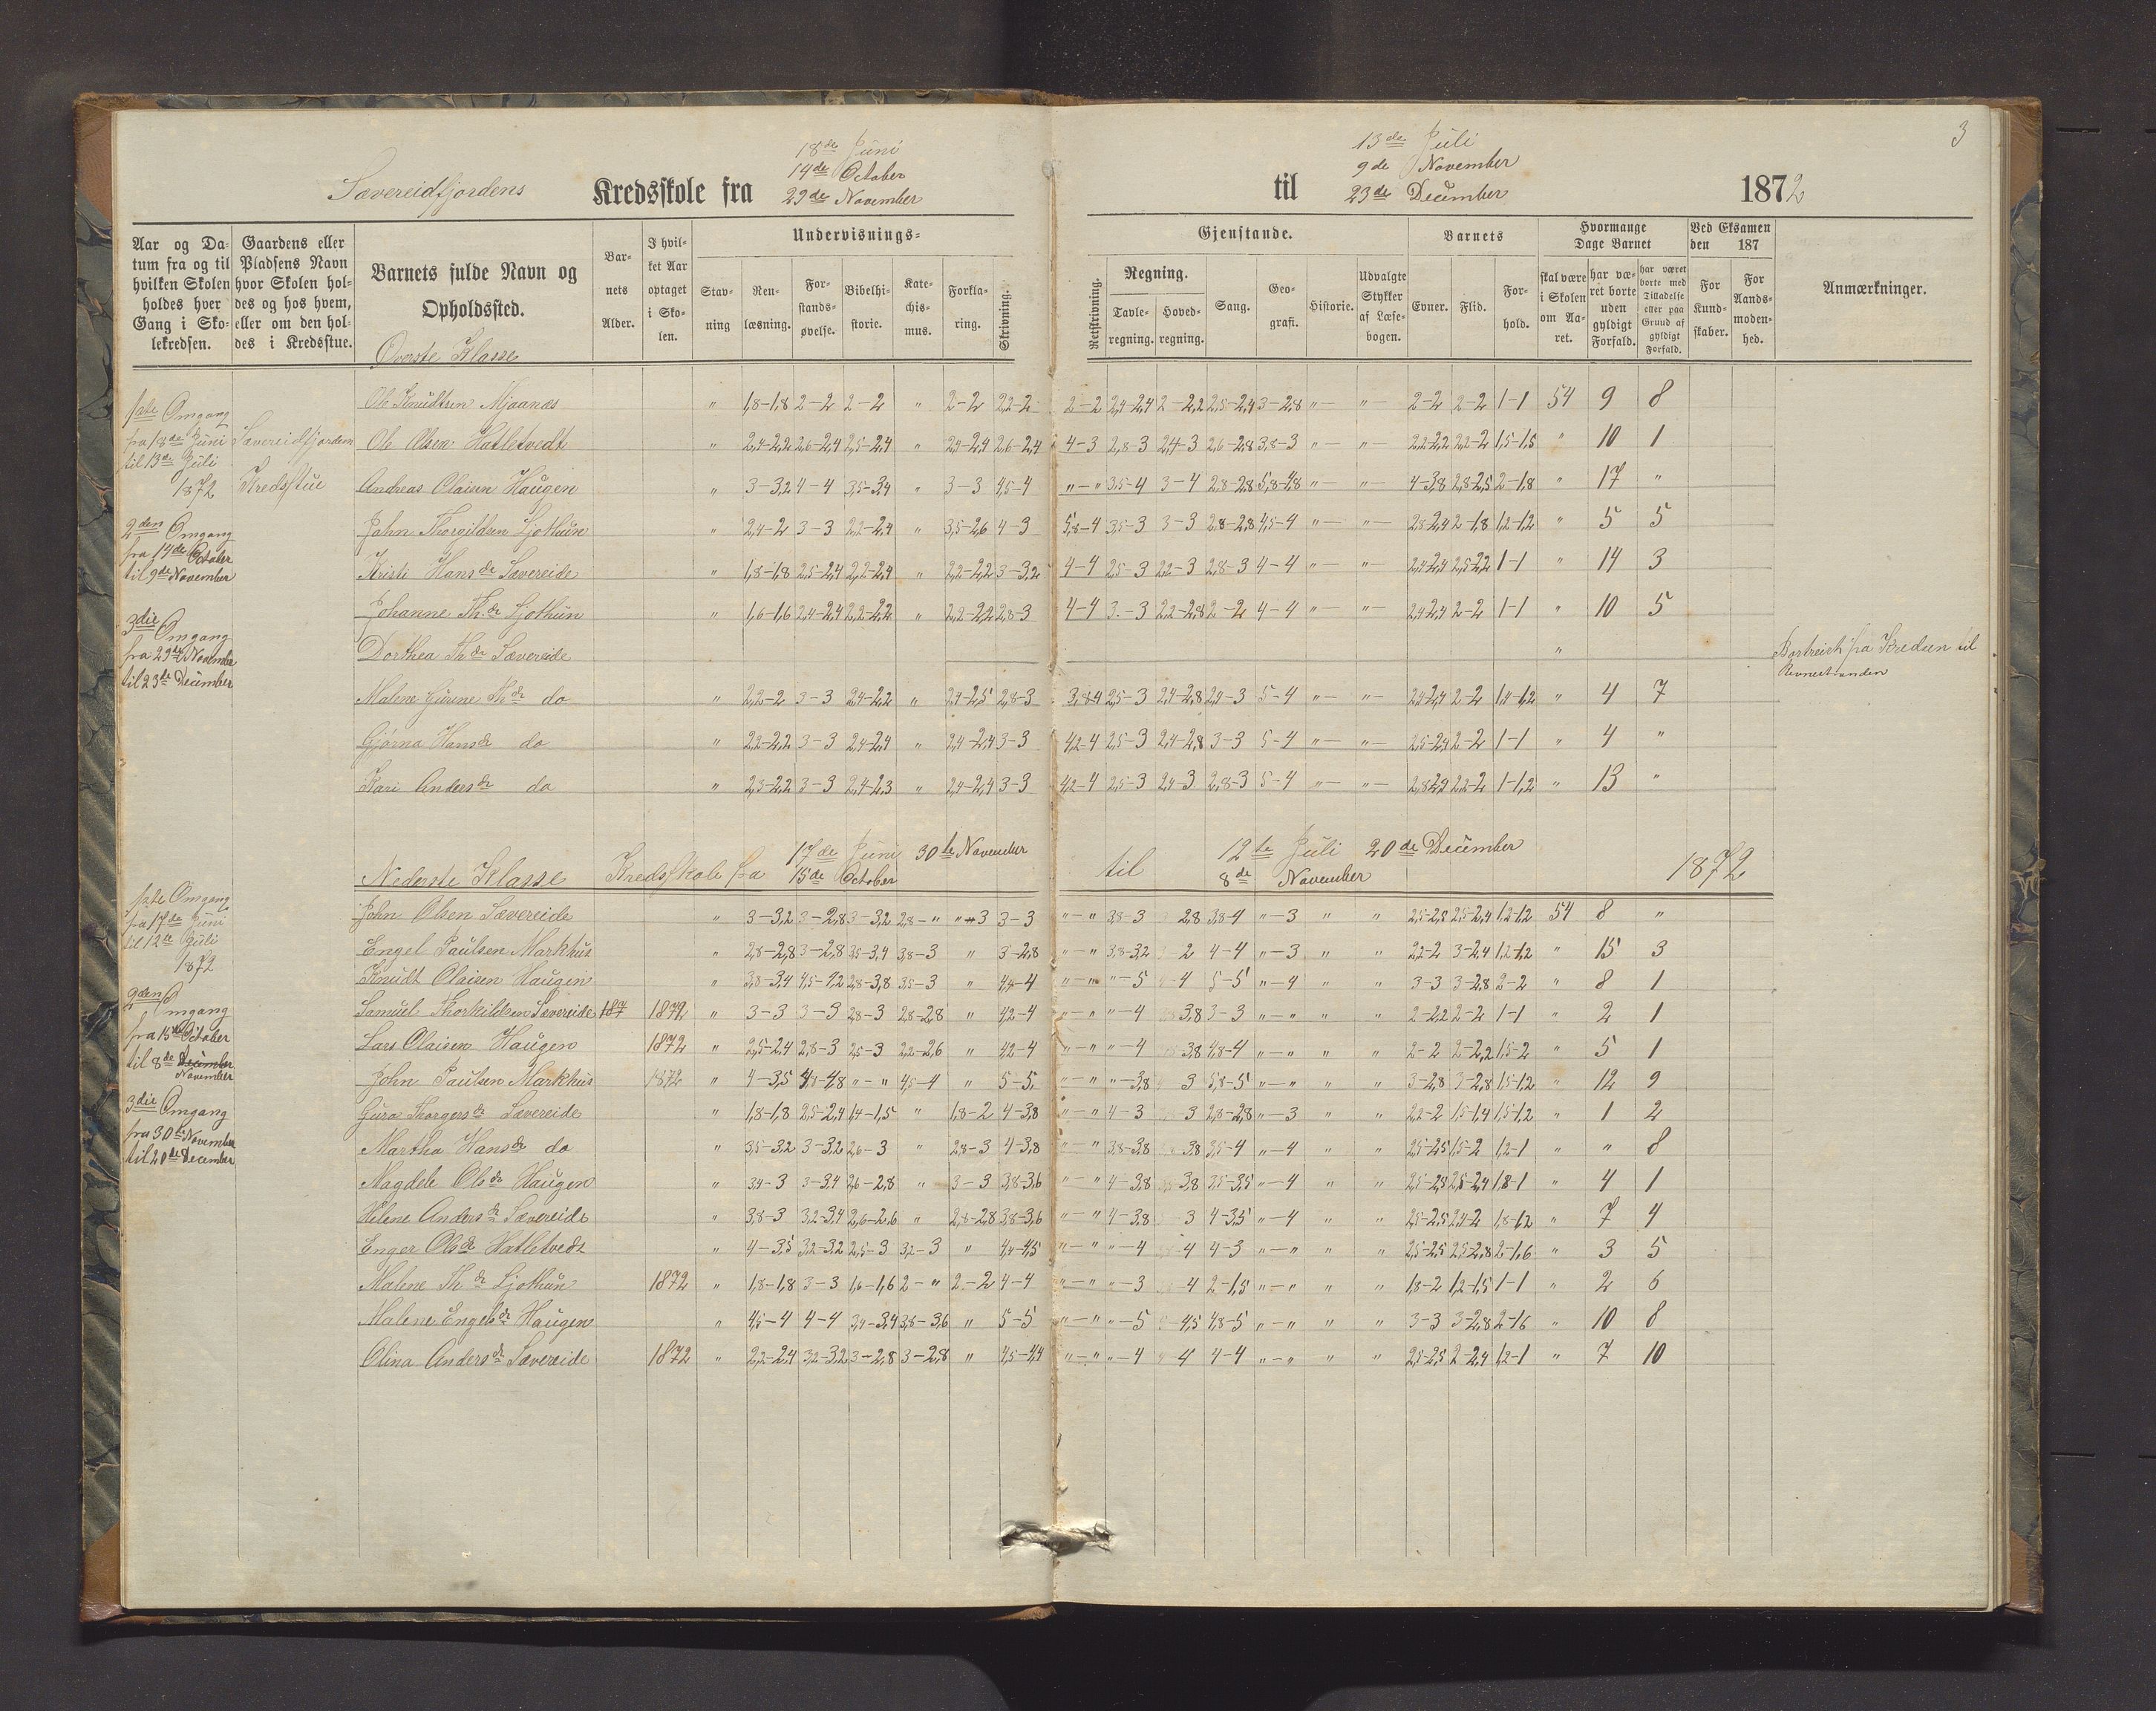 3
Sævereidfjordens Kredsskole fra 18de Juni 14de October 29de November til 13de Juli 9de November 23de December 1872
Aar og Datum fra og til hvilken Skolen holdes hver Gang i Skolekredsen.
Gaardens eller Pladsens Navn hvor Skolen holdes og hos hvem, eller om den holdes i Kredsstue.
Barnets fulde Navn og Opholdssted.
Barnets Alder.
I hvilket Aar optaget i Skolen.
Undervisnings-
Stavning
Renlæsning.
Forstandsøvelse.
Bibelhistorie.
Katechismus.
Forklaring.
Skrivning.
Gjenstande.
Retskrivning.
Regning.
Tavleregning.
Hovedregning.
Sang.
Geografi.
Historie.
Udvalgte Stykker af Læsebogen.
Barnets
Evner.
Flid.
Forhold.
Hvormange Dage Barnet
skal være i Skolen om Aaret.
har været borte uden gyldigt Forfald.
har været borte med Tilladelse eller paa Grund af gyldigt Forfald.
Ved Eksamen den 187
For Kundskaber.
For Aandsmodenhed.
Anmærkninger.
Øverste Klasse
1ste Omgang
fra 18de Juni
til 13de Juli
1872
Sævereidfjordens
Kredsstue
2den Omgang
fra 14de October
til 9de November
3die Omgang
fra 29de November
til 23de December
Ole Knudtsen Mjaanæs " 1,8-1,8 2-2 2-2 " 2-2 2,2-2 2-2 2,4-2,4 2-2,2 2,5-2,4 3-2,8 "- "- 2-2 2-2 1-1 54 9 8
Ole Olsen Hatletvedt " 2,4-2,2 2,6-2,4 2,5-2,4 " 2,4-2,4 2,6-2,4 4-3 2,8-3 2,4-3 2,6-2,8 3,8-3 "- "- 2,2-2,2 2,2-2 1,5-1,5 " 10 1
Andreas Olaisen Haugen " 3-3,2 4-4 3,5-3,4 " 3-3 4,5-4 "-" 3,5-4 3-4 2,8-2,8 5,8-4,8 "- "- 4-3,8 2,8-2,5 2-1,8 " 17 "
John Thorgildsen Ljothun " 2,4-2 3-3 2,2-2,4 " 3,5-2,6 4-3 5,8-4 3,5-3 3-3 2,8-2,8 4,5-4 "- "- 2,8-2,4 2-1,8 1,2-1,2 " 5 5
Kristi Hansdr Sævereide " 1,8-1,8 2,5-2,4 2,2-2,4 " 2,2-2,2 3-3,2 4-4 2,5-3 2,2-3 2,8-3 4-4 "- "- 2,4-2,4 2,5-2,2 1-1 " 14 3
Johanne Th.dr Ljothun " 1,6-1,6 2,4-2,4 2,2-2,2 " 2,2-2,2 2,8-3 4-4 3-3 2,2-2,8 2-2 4-4 "- "- 2,4-2,4 2-2 1-1 " 10 5
Dorthea Thdr Sævereide " Bortreist fra Kredsen til
Malene Gurine Thdr do " 2,2-2 3-3 2,4-2,2 " 2,4-2,5 2,8-3 3,8-4 2,5-3 2,4-2,8 2,4-3 5-4 "- "- 2,4-2,4 2-2 1,4-1,2 " 4 7
Gjørna Hansdr do " 2,2-2,2 3-3 2,4-2,4 " 2,4-2,4 3-3 4,2-4 2,5-3 2,4-2,8 3-3 5-4 "- "- 2,5-2,4 2-2 1-1 " 4 "
Kari Andersdr do " 2,3-2,2 3-3 2,4-2,3 " 2,4-2,4 3-3 4,2-4 2,5-3 2,4-3 2,8-3 5-4 "- "- 2,8-2,9 2,2-2 1-1,2 " 13 "
Nederste Klasse Kredsskole fra 17de Juni 30te November 15de October til 12te Juli 20de December 8de November 1872
1ste Omgang
fra 17de Juni
til 12te Juli
1872
2den Omgang
fra 15de October
til 8de December
November
3die Omgang
fra 30te November
til 20de December
John Olsen Sævereide " 3-3,2 3-2,8 3-3,2 2,8-" "-3 3-3 "-" 3,8-3 2,8 3,8-4 "-3 " " 2,5-2,8 2,5-2,4 1,2-1,2 54 8 "
Engel Paulsen Markhus " 2,8-2,8 3-2,8 3,5-3,4 3,8-3 " 3-2,8 "-" 3,8-3,2 2 4-4 "-3 " " 2,2-2 3-2,4 1,2-1,2 " 15 3
Knudt Olaisen Haugen " 3,8-3,4 4,5-4,2 2,8-3,8 3,5-3 " 4,4-4 "-" "-5 4 5-5 "-4 " " 3-3 3-2,8 2-2 " 8 1
Samuel Thorkildsen Sævereide 1872 " 3-3 3-3 2,8-3 2,8-2,8 " 4,2-4 "-" "-4 3,8 3-3 "-" " " 2-2,2 2-2 1-1 " 2 1
Lars Olaisen Haugen 1872 " 2,5-2,4 2,8-3 2,5-3 2,2-2,6 " 4,2-4 "-" "-4 3,8 4,8-4 "-" " " 2-2 2-2,2 1,5-2 " 5 1
John Paulsen Markhus 1872 " 4-3,5 4,8-4,8 "-" 4,5-4 " 5-5 "-" "-3,8 3 5,8-5 "-" " " 3-2,8 3-2,8 1,5-1,2 " 12 9
Gura Thorgersdr Sævereide " 1,8-1,8 2,5-2,4 1,4-1,5 " 1,8-2 4-3,8 "-" 4-3 3 2,8-2,8 "-3 " " 2,2-2 1,5-1,4 1,5-1,2 " 1 2
Martha Hansdr do " 3,5-3,2 3-3,2 2,6-3 " 2,8-3 4-3,8 "-" 3,8-3,8 3,8 3,5-4 "-4 " " 2,5-2,5 1,5-2 1,2-1 " " 8
Magdele Olsdr Haugen " 3,4-3 3-3,4 2,6-2,8 " 3-3 3,8-3,6 "-" 4-3,8 3,8 3,5-3,5 "-4 " " 2,5-2,5 2,5-2,4 1,8-1 " 4 1
Helene Andersdr Sævereide " 3,8-3 3,2-3,4 2,6-2,6 " 2,8-2,8 3,8-3,6 "-" 4-3,8 3 4-3,5 "-4 " " 2,5-2,5 2,4-2 1,8-1,2 " 7 4
Enger Olsdr Hatletvedt " 4-3,5 3,2-3,2 2,5-3 3,2-3 " 4,4-4,5 "-" "-4 4 4-3 "-" " " 2,5-2,5 2,5-2,8 2-1,6 " 3 5
Malene Thdr Ljothun 1872 " 1,8-1,8 3-3 1,6-1,6 2-" 2-2 4-4 "-" "-3 4 2-1,5 "-" " " 1,8-2 1,2-1,5 1-1 " 2 6
Malene Engelsdr Haugen " 4,5-4 4-4 3,4-3,4 3,8-3,6 " 5-5 "-" "-5 4,5 4,8-5 "-" " " 3-3 3-2,8 2-1,6 " 10 8
Olina Andersdr Sævereide 1872 " 2,2-2,4 3,2-3,2 3-2,8 3-2,8 " 4,5-4,4 "-" "-4 4 4-4 "-" " " 2,5-2,5 2-2,4 1,2-1 " 7 10